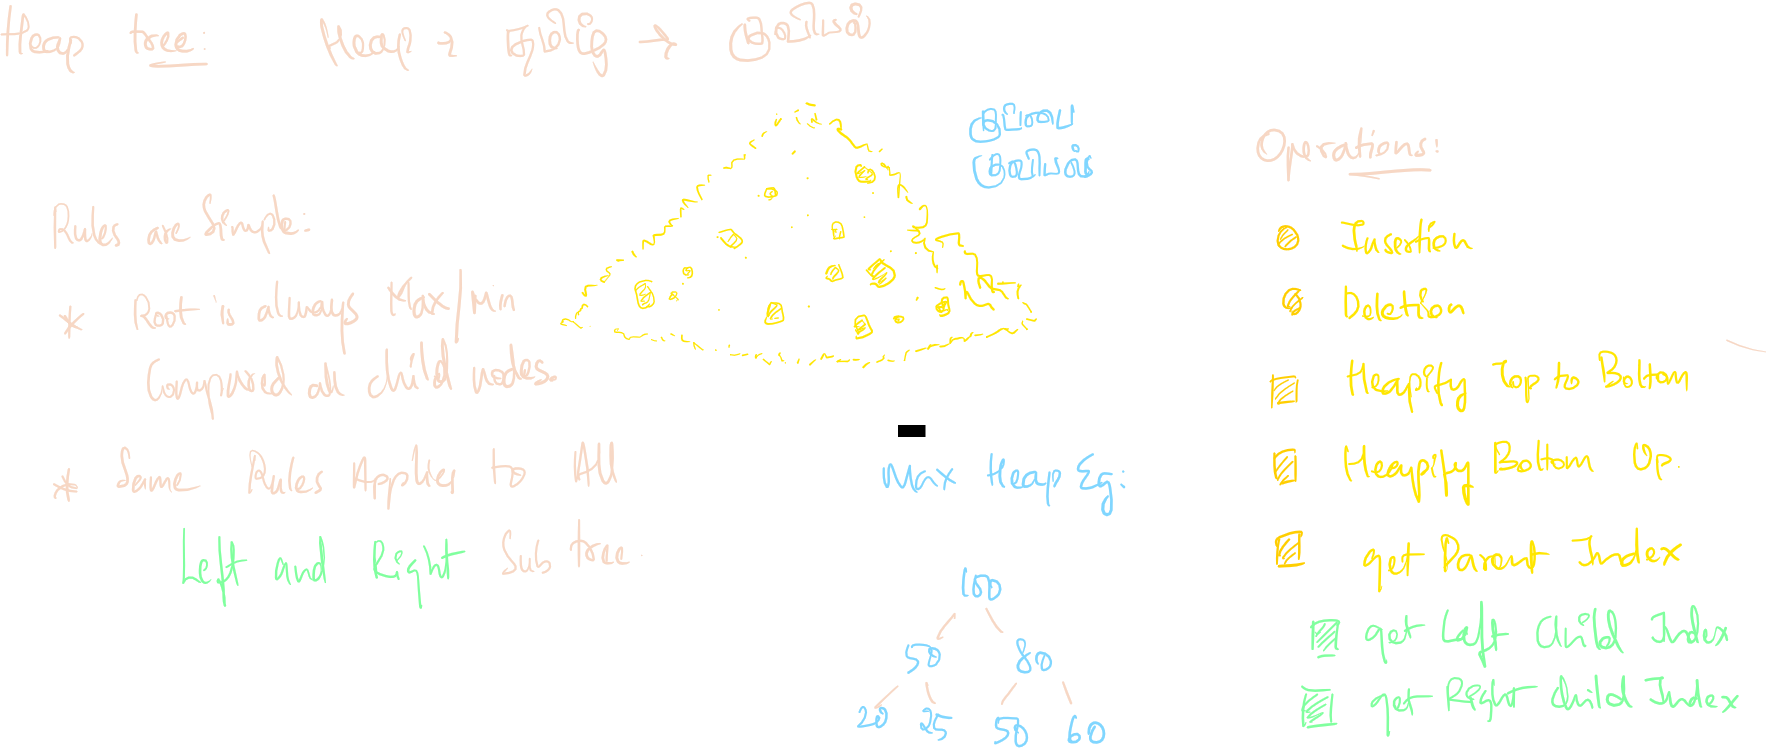 Heap tree: Heap → தமிழ் → குவியல்
குப்பை
குவியல்
Rules are Simple:
* Root is always Max/Min
Compared all child nodes.
* Same Rules Applies to All
Left and Right Sub tree
Max Heap Eg:
100
50 80
20 25 50 60
Operations:
Insertion
Deletion
Heapify Top to Bottom
Heapify Bottom Up.
get Parent Index
get Left Child Index
get Right Child Index